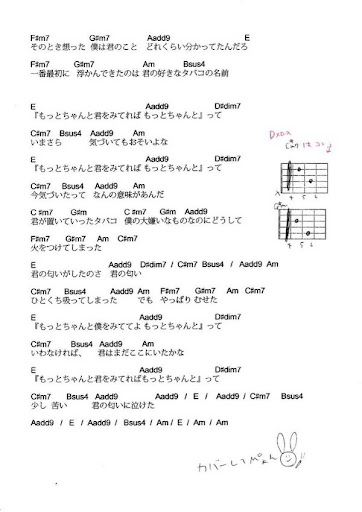 F#m7 G#m7 Aadd9 E
そのとき想った 僕は君のこと どれくらい分かってたんだろ
F#m7 G#m7 Am Bsus4
一番最初に 浮かんできたのは 君の好きなタバコの名前
E Aadd9 D#dim7
『もっとちゃんと君をみてれば もっとちゃんと』って
C#m7 Bsus4 Aadd9 Am
いまさら 気づいてもおそいよな
E Aadd9 D#dim7
『もっとちゃんと君をみてれば もっとちゃんと』って
C#m7 Bsus4 Aadd9 Am
今気づいたって なんの意味があんだ
G#m7 Gm C#m7 G#m7 Aadd9
君が置いていったタバコ 僕の大嫌いなものなのにどうして
Am
火をつけてしまった
E Aadd9 D#dim7 / C#m7 Bsus4 / Aadd9 Am
君の匂いがしたのさ 君の匂い
C#m7 Bsus4 Aadd9 Am F#m7 G#m7 Am C#m7
ひとくち吸ってしまった でも やっぱり むせた
E Aadd9 D#dim7
『もっとちゃんと僕をみててよ もっとちゃんと』って
C#m7 Bsus4 Aadd9 Am
いわなければ、 君はまだここにいたかな
E Aadd9 D#dim7
『もっとちゃんと君をみてれば もっとちゃんと』って
C#m7 Bsus4 Aadd9 Aadd9 / E / Aadd9 / C#m7 Bsus4
少し 苦い 君の匂いに泣けた
Aadd9 / E / Aadd9 / Bsus4 / Am / E / Am / Am